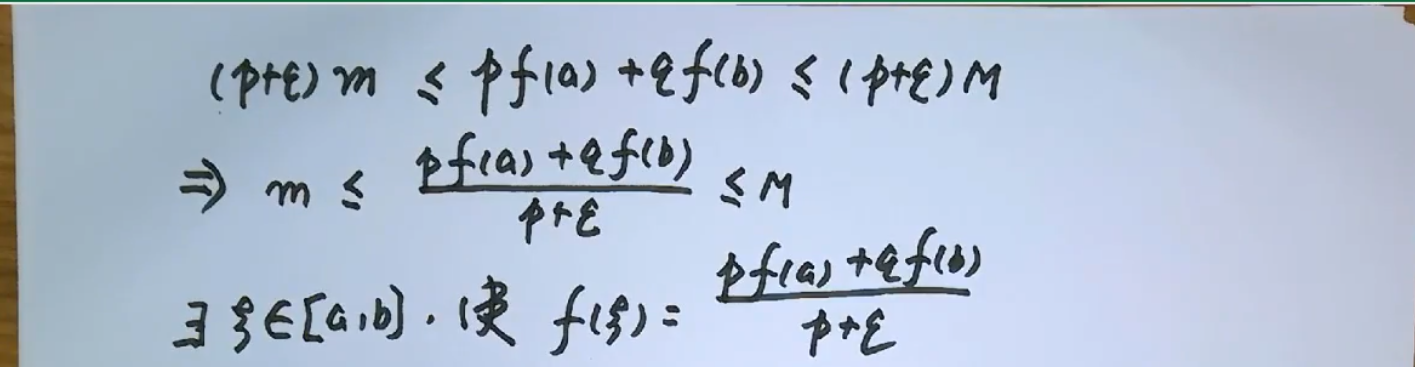 (p+q)m ≤ pf(a)+qf(b) ≤ (p+q)M
⇒ m ≤ \frac{pf(a)+qf(b)}{p+q} ≤ M
∃ ξ∈[a,b]. 使 f(ξ)= \frac{pf(a)+qf(b)}{p+q}